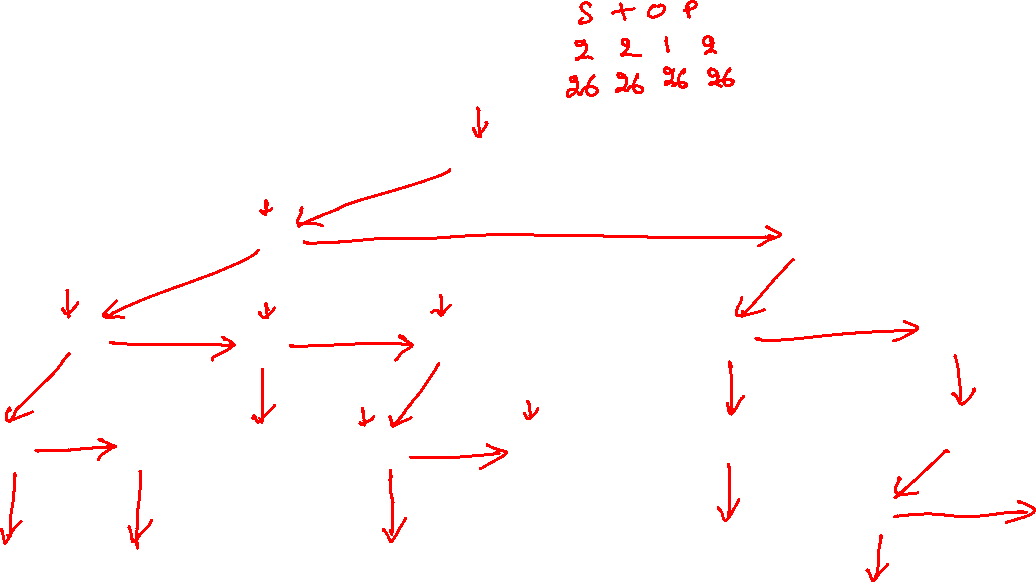 S t O P
2 2 1 2
26 26 26 26